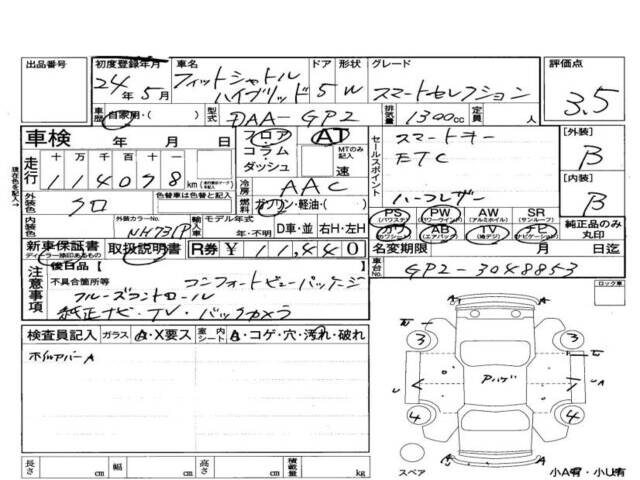 出品番号 初度登録年月 車名 ドア 形状 グレード 評価点
24年5月 フィットシャトル ハイブリッド 5 W スマートセレクション 3.5
車歴 自家用・( ) 型式 DAA-GP2 排気量 1300cc 定員 人
車検 年 月 日 フロア AT セールスポイント スマートキー [外装]
コラム MTのみ記入 ETC B
走行 十万千百十一 ダッシュ 速
114098km 冷房 AAC [内装]
外装色 クロ 色替車は色替色を記入 燃料 ガソリン・軽油・( ) ハーフレザー B
PS (パワステ) PW (パワーウインド) AW (アルミホイル) SR (サンルーフ) 純正品のみ丸印
内装色 外装カラーNo. NH731P 輸入車 モデル年式 年・不明 D車・並 右H・左H カワ (カワシート) AB (エアバック) TV ナビ (ナビゲーション)
新車保証書 ディーラー捺印あるもの 取扱説明書 R券 ¥11,440 名変期限 月 日迄
注意事項 後日品【 車台No. GP2-3048853
不具合箇所等 コンフォートビューパッケージ ロック車
クルーズコントロール
純正ナビ・TV・バックカメラ
検査員記入 ガラス A・X要ス 室内シート A・コゲ・穴・汚れ・破れ
ホイルカバーA
3 3
U A Pハゲ U A
4 4
長さ cm 幅 cm 高さ cm 積載量 kg スペア 小A有・小U有